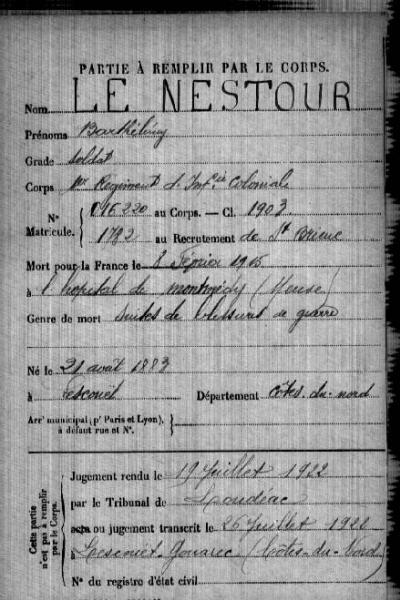 PARTIE À REMPLIR PAR LE CORPS.
Nom LE NESTOUR
Prénoms Barthélémy
Grade soldat
Corps 1er Régiment d'Inf.rie Coloniale
N° Matricule. { 016220 au Corps. — Cl. 1903
1782 au Recrutement de St Brieuc
Mort pour la France le 8 Février 1915
à l'hopital de Montmédy (Meuse)
Genre de mort Suites de blessures de guerre
Né le 21 août 1883
à Lescouët Département Côtes-du-nord
Arr^t municipal (p^r Paris et Lyon), à défaut rue et N°. }
Cette partie n'est pas à remplir par le Corps.
Jugement rendu le 19 Juillet 1922
par le Tribunal de Loudéac
acte ou jugement transcrit le 26 Juillet 1922
à Lescouët-Gouarec (Côtes-du-Nord)
N° du registro d'état civil